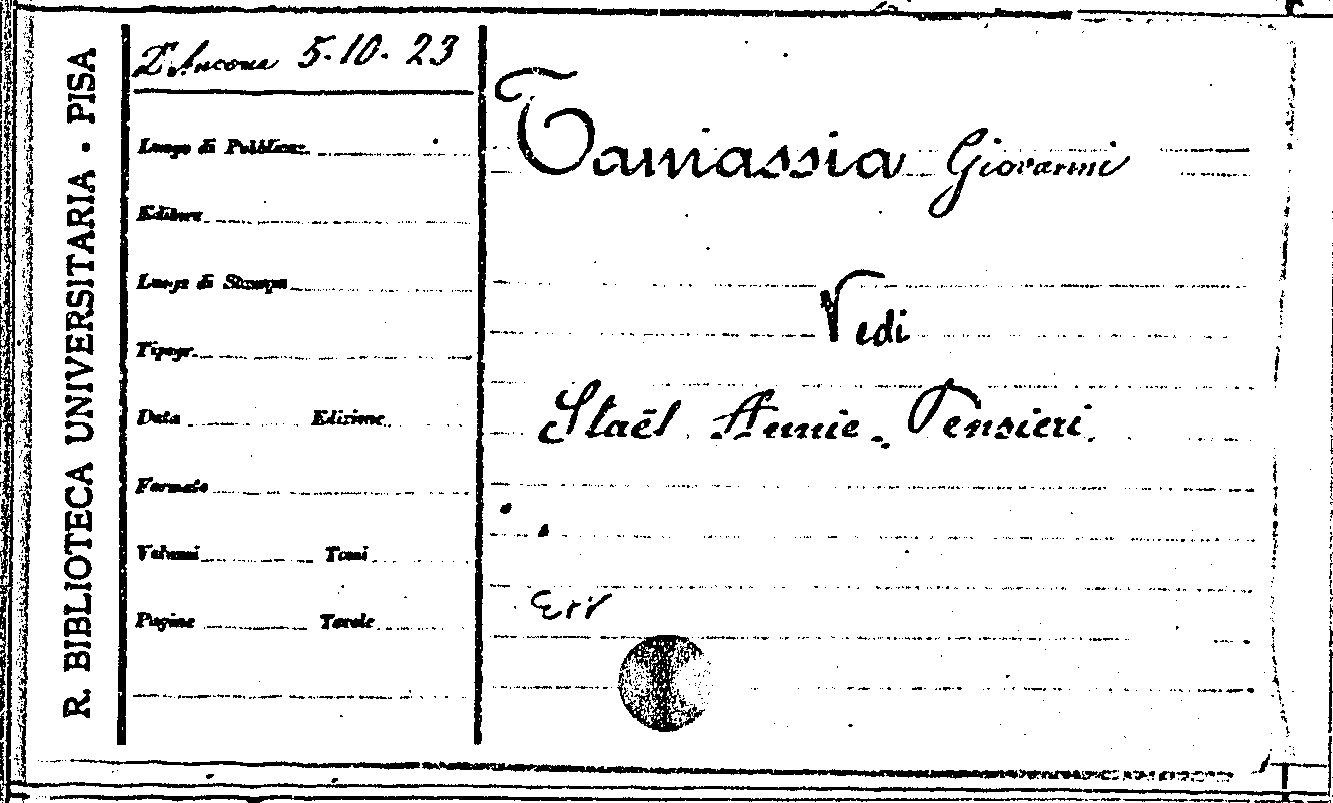 R. BIBLIOTECA UNIVERSITARIA · PISA
D'Ancona 5.10.23
Luogo di Pubblicaz.
Editore
Luogo di Stampa
Tipogr.
Data Edizione
Formato
Volumi Tomi
Pagine Tavole
Tamassia Giovanni
Vedi
Staël Annie. Pensieri.